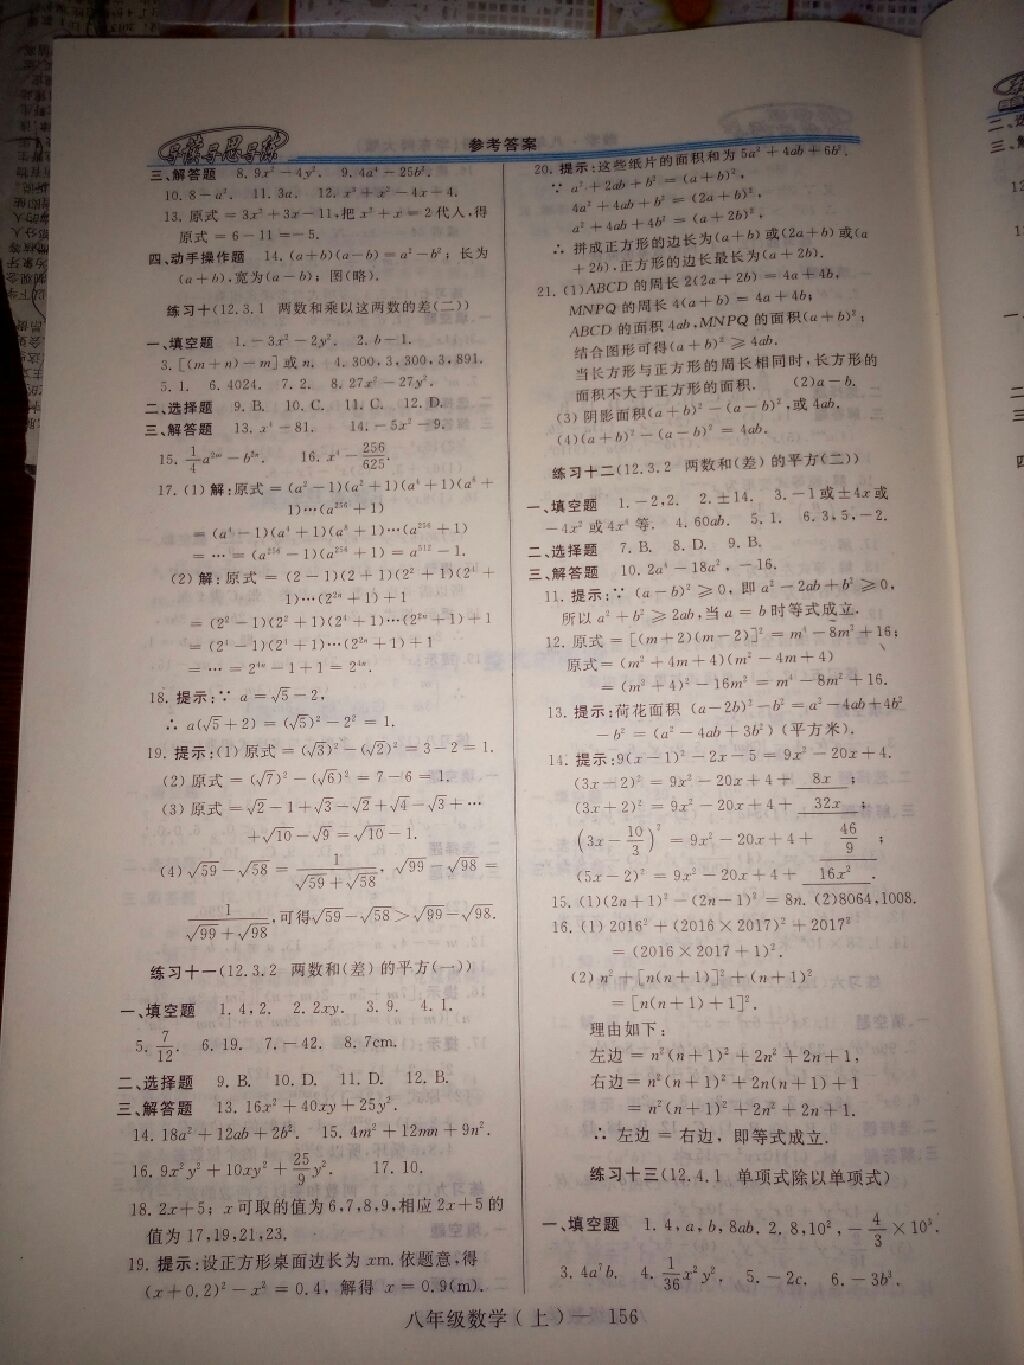 导读导思导练
参考答案
三、解答题 8. 9x² − 4y². 9. 4a⁴ − 25b².
10. 8 − a². 11. 3a. 12. x³ + x² − 4x − 4.
13. 原式 = 3x² + 3x − 11, 把 x² + x = 2 代人, 得
原式 = 6 − 11 = −5.
四、动手操作题 14. (a + b)(a − b) = a² − b²; 长为
(a + b), 宽为(a − b); 图(略).
练习十(12.3.1 两数和乘以这两数的差(二))
一、填空题 1. −3x² − 2y². 2. b − 1.
3. [(m + n) − m] 或 n. 4. 300, 3, 300, 3, 891.
5. 1. 6. 4024. 7. 2. 8. 27x² − 27y².
二、选择题 9. B. 10. C. 11. C. 12. D.
三、解答题 13. x⁴ − 81. 14. −5x² − 9.
15. 1/4 a²ᵐ − b²ⁿ. 16. x⁴ − 256/625.
17. (1) 解: 原式 = (a² − 1)(a² + 1)(a⁴ + 1)(a⁸ +
1)⋯(a²⁵⁶ + 1)
= (a⁴ − 1)(a⁴ + 1)(a⁸ + 1)⋯(a²⁵⁶ + 1)
= ⋯ = (a²⁵⁶ − 1)(a²⁵⁶ + 1) = a⁵¹² − 1.
(2) 解: 原式 = (2 − 1)(2 + 1)(2² + 1)(2⁴ +
1)⋯(2²ⁿ + 1) + 1
= (2² − 1)(2² + 1)(2⁴ + 1)⋯(2²ⁿ + 1) + 1
= (2⁴ − 1)(2⁴ + 1)⋯(2²ⁿ + 1) + 1
= ⋯ = 2⁴ⁿ − 1 + 1 = 2⁴ⁿ.
18. 提示: ∵ a = √5 − 2,
∴ a(√5 + 2) = (√5)² − 2² = 1.
19. 提示: (1) 原式 = (√3)² − (√2)² = 3 − 2 = 1.
(2) 原式 = (√7)² − (√6)² = 7 − 6 = 1.
(3) 原式 = √2 − 1 + √3 − √2 + √4 − √3 + ⋯
+ √10 − √9 = √10 − 1.
(4) √59 − √58 = 1/(√59 + √58), √99 − √98 =
1/(√99 + √98), 可得 √59 − √58 > √99 − √98.
练习十一(12.3.2 两数和(差)的平方(一))
一、填空题 1. 4, 2. 2. 2xy. 3. 9. 4. 1.
5. 7/12. 6. 19. 7. −42. 8. 7cm.
二、选择题 9. B. 10. D. 11. D. 12. B.
三、解答题 13. 16x² + 40xy + 25y².
14. 18a² + 12ab + 2b². 15. 4m² + 12mn + 9n².
16. 9x²y² + 10xy² + 25/9 y². 17. 10.
18. 2x + 5; x 可取的值为 6, 7, 8, 9, 相应 2x + 5 的
值为 17, 19, 21, 23.
19. 提示: 设正方形桌面边长为 xm. 依题意, 得
(x + 0.2)² − x² = 0.4, 解得 x = 0.9(m).
20. 提示: 这些纸片的面积和为 5a² + 4ab + 6b².
∵ a² + 2ab + b² = (a + b)²,
4a² + 4ab + b² = (2a + b)²,
a² + 4ab + 4b² = (a + 2b)²,
∴ 拼成正方形的边长为(a + b) 或(2a + b) 或(a
+ 2b), 正方形的边长最长为(a + 2b).
21. (1) ABCD 的周长 2(2a + 2b) = 4a + 4b,
MNPQ 的周长 4(a + b) = 4a + 4b;
ABCD 的面积 4ab, MNPQ 的面积(a + b)²;
结合图形可得(a + b)² ⩾ 4ab.
当长方形与正方形的周长相同时, 长方形的
面积不大于正方形的面积. (2) a − b.
(3) 阴影面积(a + b)² − (a − b)², 或 4ab.
(4) (a + b)² − (a − b)² = 4ab.
练习十二(12.3.2 两数和(差)的平方(二))
一、填空题 1. −2, 2. 2. ±14. 3. −1 或 ±4x 或
−4x² 或 4x⁴ 等. 4. 60ab. 5. 1. 6. 3, 5, −2.
二、选择题 7. B. 8. D. 9. B.
三、解答题 10. 2a⁴ − 18a², −16.
11. 提示: ∵ (a − b)² ⩾ 0, 即 a² − 2ab + b² ⩾ 0,
所以 a² + b² ⩾ 2ab, 当 a = b 时等式成立.
12. 原式 = [(m + 2)(m − 2)]² = m⁴ − 8m² + 16;
原式 = (m² + 4m + 4)(m² − 4m + 4)
= (m² + 4)² − 16m² = m⁴ − 8m² + 16.
13. 提示: 荷花面积 (a − 2b)² − b² = a² − 4ab + 4b²
− b² = (a² − 4ab + 3b²) (平方米).
14. 提示: 9(x − 1)² − 2x − 5 = 9x² − 20x + 4.
(3x − 2)² = 9x² − 20x + 4 + 8x ;
(3x + 2)² = 9x² − 20x + 4 + 32x ;
(3x − 10/3)² = 9x² − 20x + 4 + 46/9 ;
(5x − 2)² = 9x² − 20x + 4 + 16x² .
15. (1) (2n + 1)² − (2n − 1)² = 8n. (2) 8064, 1008.
16. (1) 2016² + (2016 × 2017)² + 2017²
= (2016 × 2017 + 1)².
(2) n² + [n(n + 1)]² + (n + 1)²
= [n(n + 1) + 1]².
理由如下:
左边 = n²(n + 1)² + 2n² + 2n + 1,
右边 = n²(n + 1)² + 2n(n + 1) + 1
= n²(n + 1)² + 2n² + 2n + 1.
∴ 左边 = 右边, 即等式成立.
练习十三(12.4.1 单项式除以单项式)
一、填空题 1. 4, a, b, 8ab. 2. 8, 10², −4/3 × 10³.
3. 4a⁷b. 4. 1/36 x²y². 5. −2c. 6. −3b³.
八年级数学(上)— 156